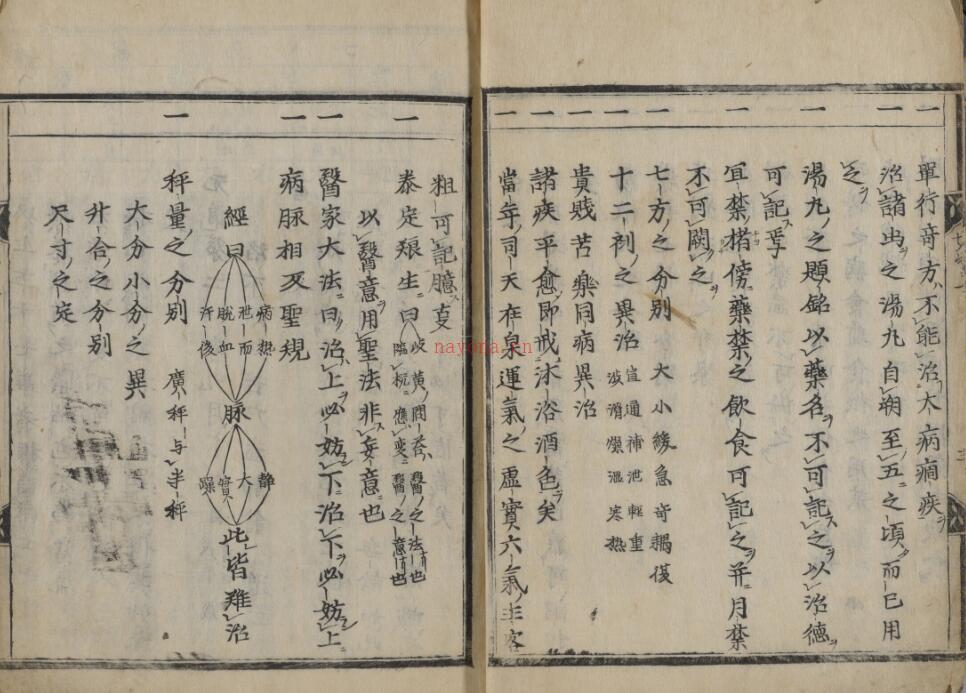 一 單行奇方不能治大病痼疾
一 治諸虫之湯丸自朔至五之頃而已用
之
一 湯丸之題銘以藥名不可記之以治德
可記焉
一 宜禁楮傍藥禁之飲食可記之并月禁
不可闕之
一 七方之分別 大小緩急奇耦復
一 十二剂之異治 宣通補泄輕重
澁滑燥湿寒熱
一 貴賎苦樂同病異治
一 諸疾平愈即戒沐浴酒色矣
一 當年司天在泉運氣之虛實六氣主客
粗可記臆叓
一 泰定養生曰 岐黄問荅醫之法也
臨機應変醫之意也
以醫意用聖法非妄意也
一 醫家大法曰治上必妨下治下必妨上
一 病脉相反聖規
經曰
病熱
泄而
脱血
汗後
脉
静
大
實
躁
此皆難治
一 秤量之分別 廣秤与半秤
大分小分之異
升合之分別
尺寸之定
nayona.cn